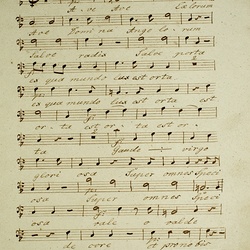 Ave Ave Cælorum
Ave Domina Angelorum
Salve radix Salve porta
ex qua mundo Lux est orta
ex qua mundo Lux est orta est
orta est orta est or
ta Gaude virgo
gloriosa Super omnes Speci
osa Super omnes Speci
osa vale o valde
decore et pro nobis